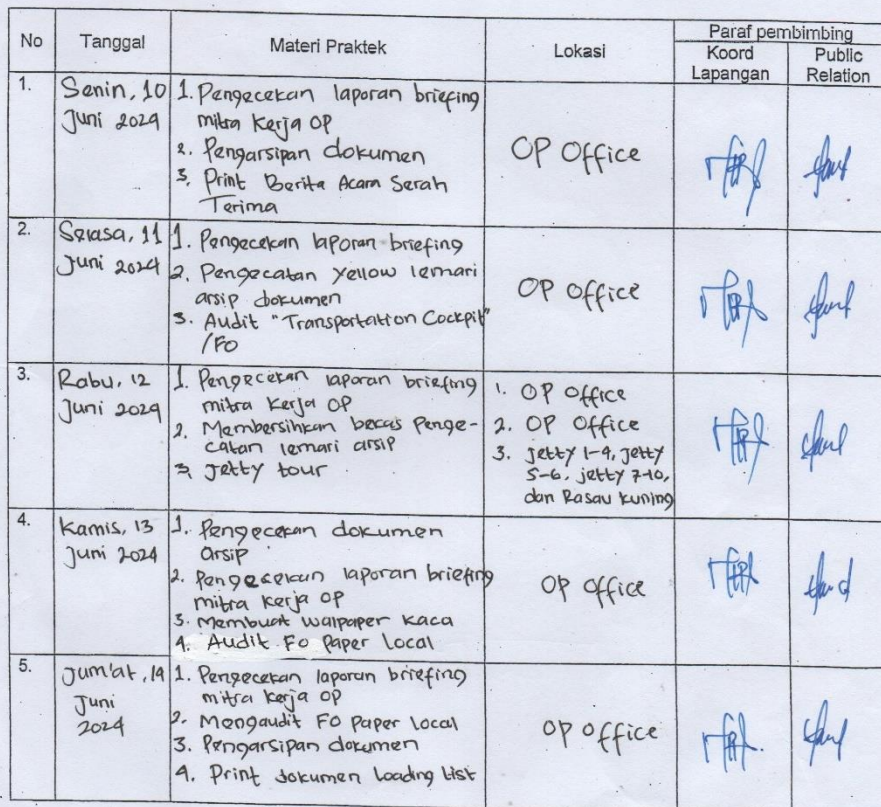 No Tanggal Materi Praktek Lokasi Paraf pembimbing
Koord Lapangan Public Relation
1. Senin, 10 Juni 2024
1. Pengecekan laporan briefing
mitra kerja OP
2. Pengarsipan dokumen
3. Print Berita Acara Serah
Terima
OP Office
2. Selasa, 11 Juni 2024
1. Pengecekan laporan briefing
2. Pengecatan yellow lemari
arsip dokumen
3. Audit "Transportation Cockpit"
/FO
OP Office
3. Rabu, 12 Juni 2024
1. Pengecekan laporan briefing
mitra kerja OP
2. Membersihkan bekas Penge-
catan lemari arsip
3. Jetty tour
1. OP Office
2. OP Office
3. jetty 1-4, jetty
5-6, jetty 7-10,
dan Rasau Kuning
4. Kamis, 13 Juni 2024
1. Pengecekan dokumen
arsip
2. Pengecekan laporan briefing
mitra kerja OP
3. Membuat walpaper kaca
4. Audit FO Paper Local
OP Office
5. Jum'at, 14 Juni 2024
1. Pengecekan laporan briefing
mitra kerja OP
2. Mengaudit FO Paper Local
3. Pengarsipan dokumen
4. Print dokumen Loading list
OP Office